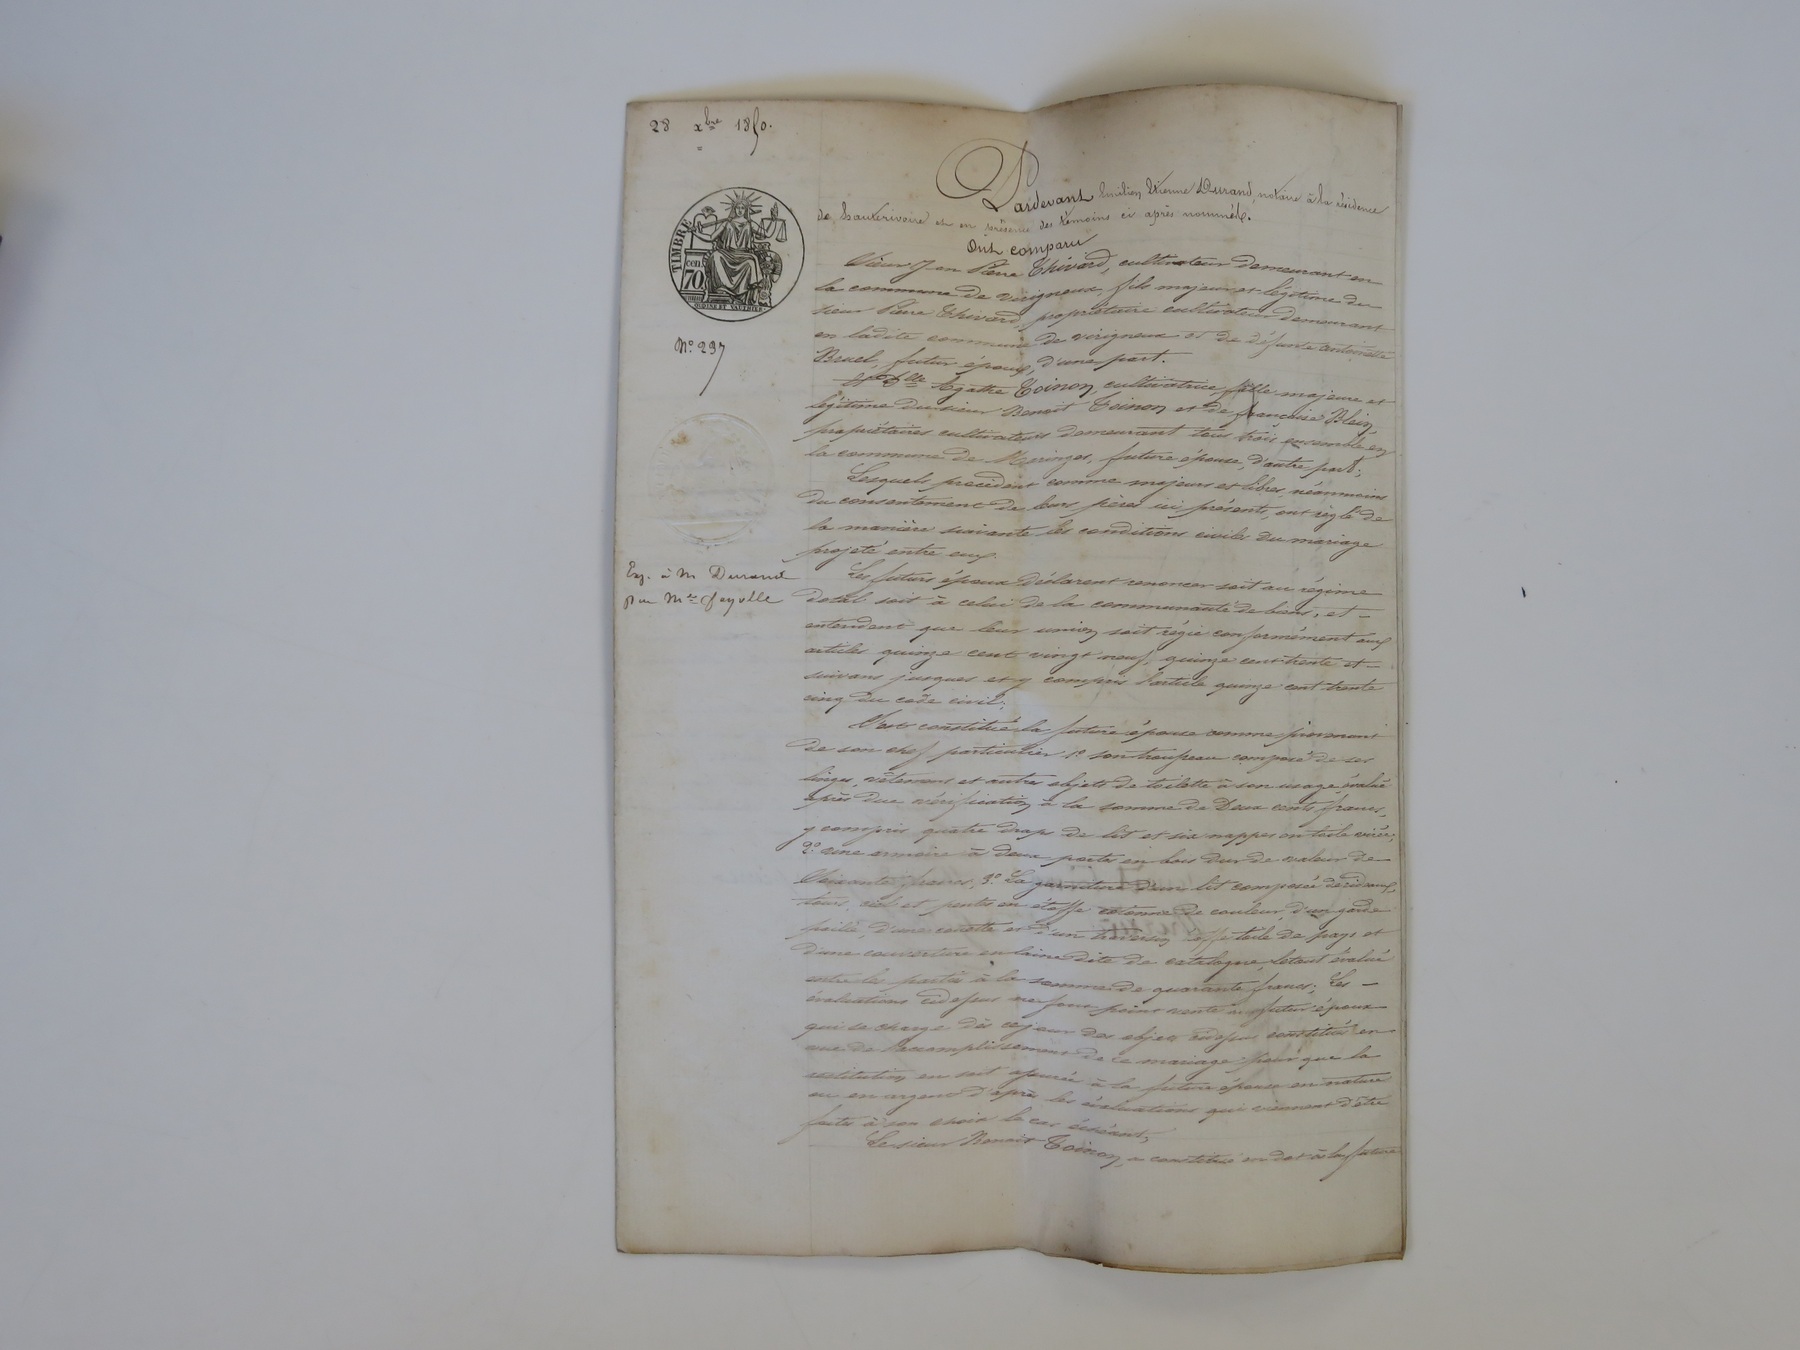 28 xbre 1850.
TIMBRE
cen.
70
OUDINÉ ET VAUTHIER
N° 297
Exp. à M Durand
Pardevant Emilien Etienne Durand, notaire à la résidence
de hauterivoire et en présence des témoins ci après nommés.
Ont comparu
Sieur Jean Pierre Thivard, cultivateur demeurant en
la commune de virigneux, fils majeur et légitime du
sieur Pierre Thivard, propriétaire cultivateur demeurant
en ladite commune de virigneux et de défunte antoinette
Bruel, futur époux, d'une part.
Et Dlle Agathe Toinon, cultivatrice, fille majeure et
légitime du sieur Benoit Toinon et de françoise Blein,
propriétaires cultivateurs demeurant tous trois ensemble en
la commune de Maringes, future épouse, d'autre part;
Lesquels procédant comme majeurs et libres, néanmoins
du consentement de leurs pères ici présents, ont réglé de
la manière suivante les conditions civiles du mariage
projeté entre eux.
Les futurs époux déclarent renoncer soit au régime
dotal soit à celui de la communauté de biens, et
entendent que leur union soit régie conformément aux
articles quinze cent vingt neuf, quinze cent trente et
suivans jusques et y compris l'article quinze cent trente
cinq du code civil;
S'est constitué la future épouse comme provenant
de son chef particulier 1° son trousseau composé de ses
linges, vêtemens et autres objets de toilette à son usage, évalué
après due vérification à la somme de Deux cents francs,
y compris quatre draps de lit et six nappes en toile
2° une armoire à deux portes en bois dur de valeur de
Soixante francs; 3° La garniture d'un lit composée de rideaux,
tours, ciel et pentes en étoffe cotonne de couleur, d'un garde
paille, d'une couette et d'un traversin toile de pays et
d'une couverture en laine dite de catalogne, le tout évalué
entre les parties à la somme de quarante francs; Les
évaluations cidessus ne font point vente au futur époux
qui se charge dès ce jour des objets cidessus constitués en
vue de l'accomplissement de ce mariage pour que la
restitution en soit assurée à la future épouse en nature
ou en argent d'après les évaluations qui viennent d'être
faites à son choix le cas échéant;
Le sieur Benoit Toinon, a constitué en dot à la future